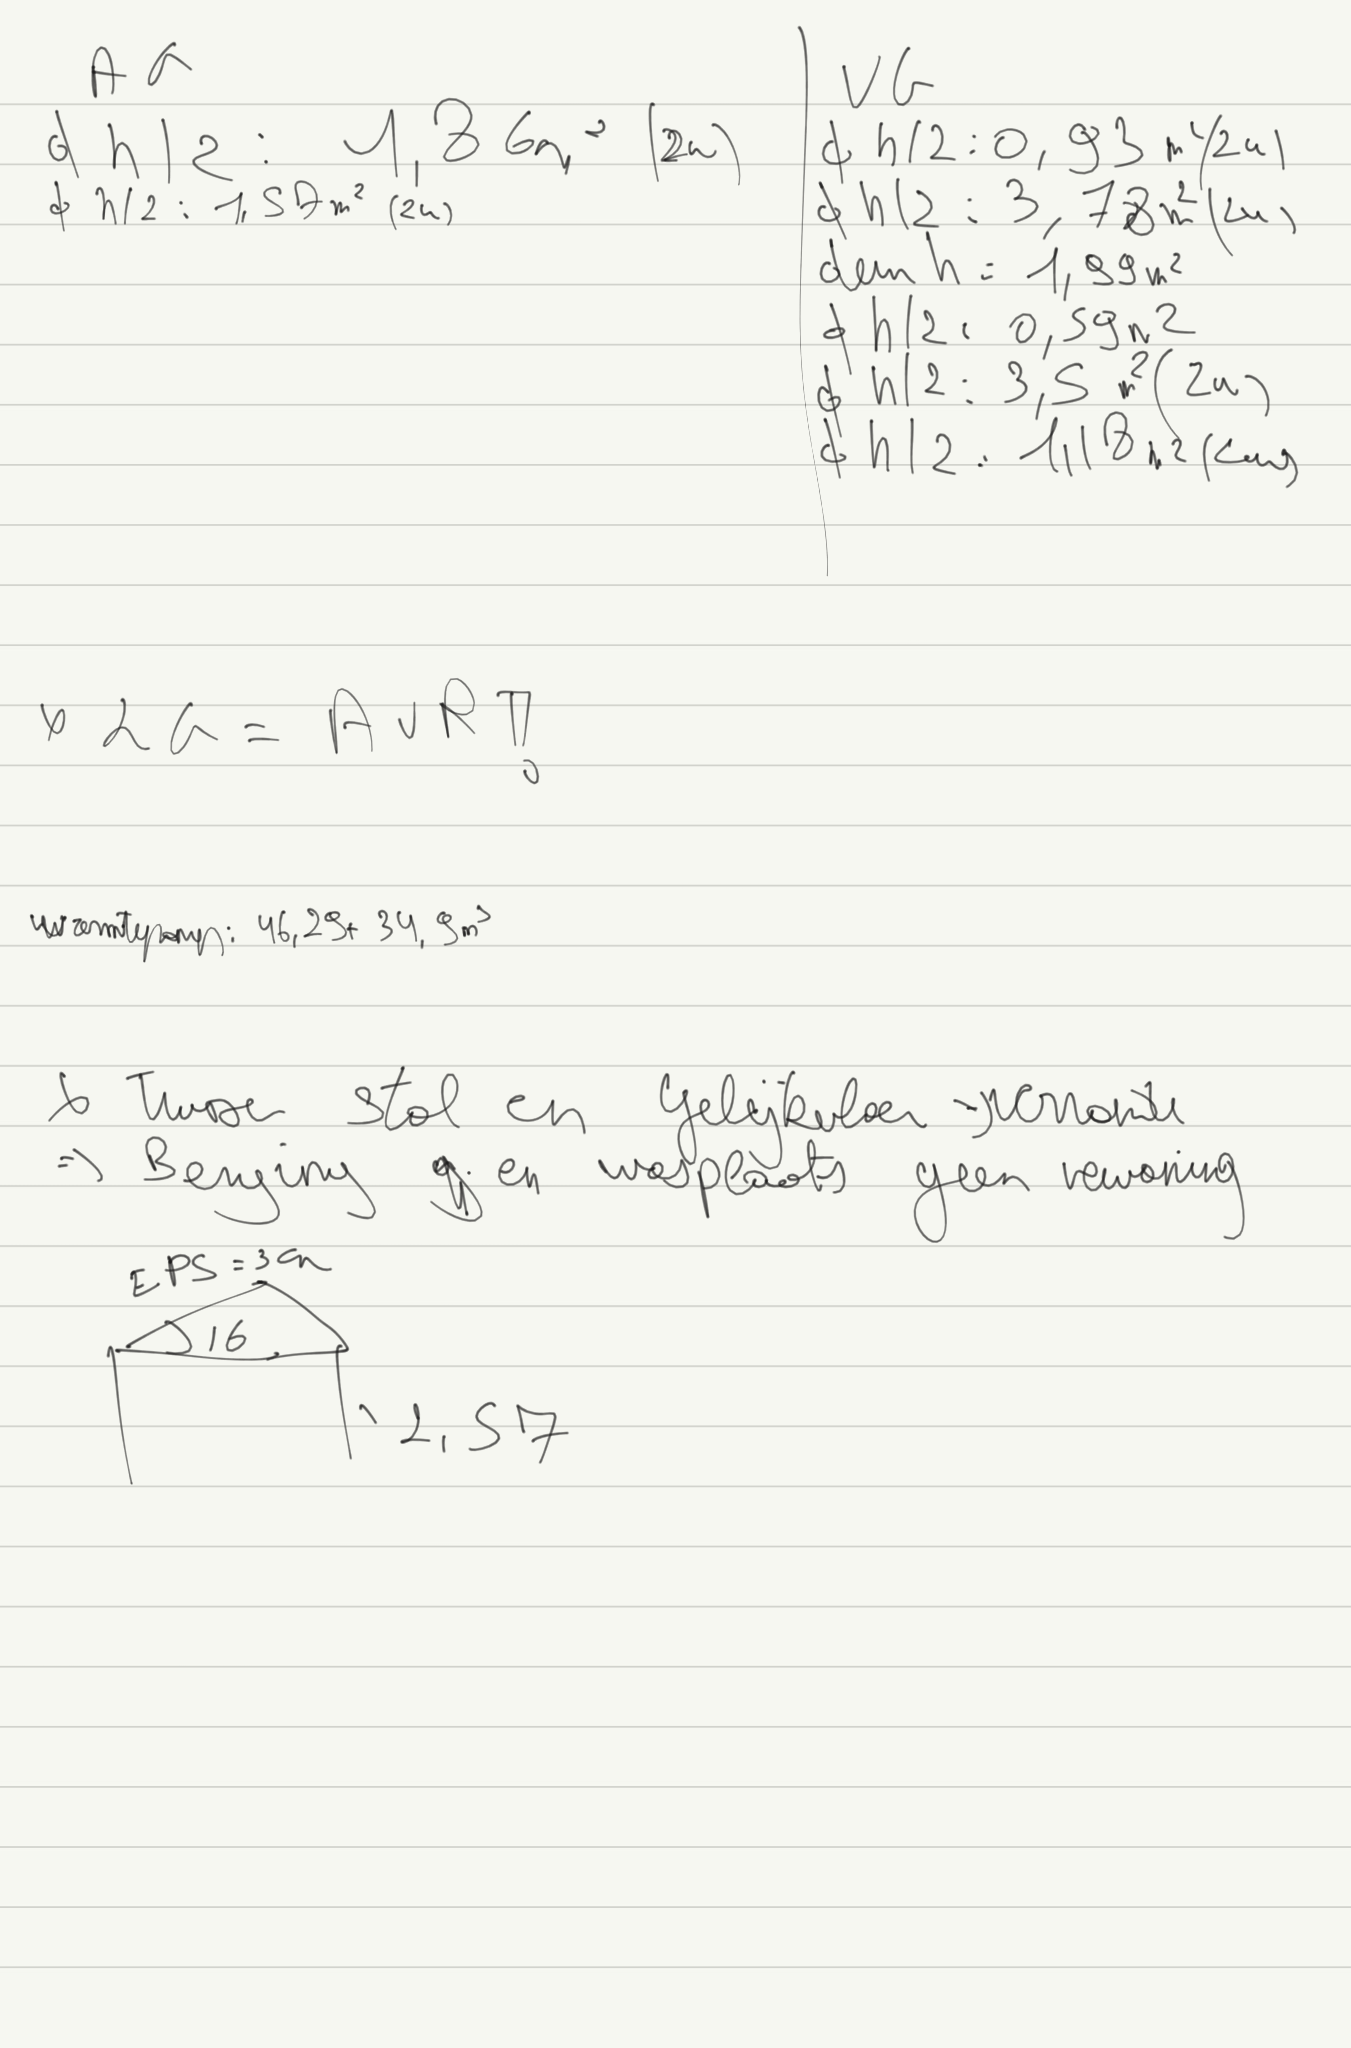 AG
d h/2 : 1,86m² (2u)
d h/2 : 1,57m² (2u)
VG
d h/2 : 0,93 m² (2u)
d h/2 : 3,78m² (2u)
dem h = 1,99m²
d h/2 : 0,59m2
d h/2 : 3,5 m² (2u)
d h/2 : 1,18m2
LG = AVR
warmtepomp: 46,29+ 34,9m³
Tussen stal en gelijkvloer
=> Berging gv en wasplaats geen
EPS = 3cm
16
2,57